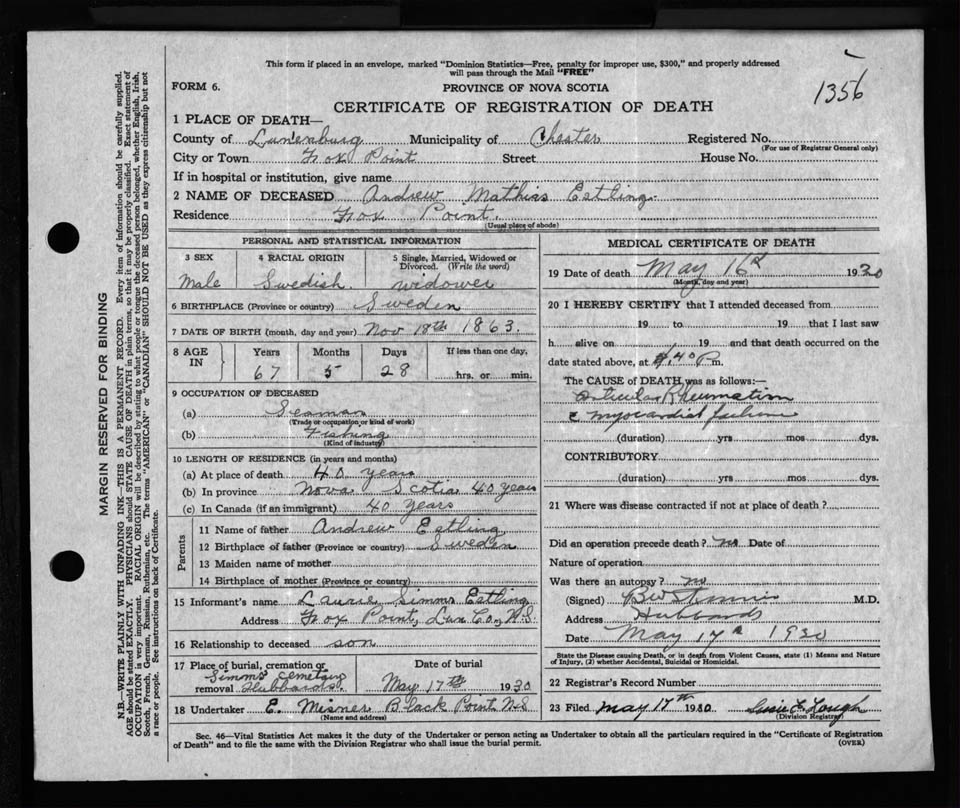 This form if placed in an envelope, marked "Dominion Statistics—Free, penalty for improper use, $300," and properly addressed
will pass through the Mail "FREE"
1356
FORM 6.
PROVINCE OF NOVA SCOTIA
CERTIFICATE OF REGISTRATION OF DEATH
1 PLACE OF DEATH—
County of Lunenburg Municipality of Chester Registered No.
(For use of Registrar General only)
City or Town Fox Point Street House No.
If in hospital or institution, give name
2 NAME OF DECEASED Andrew Mathias Estling
Residence Fox Point.
(Usual place of abode)
PERSONAL AND STATISTICAL INFORMATION
3 SEX 4 RACIAL ORIGIN 5 Single, Married, Widowed or Divorced. (Write the word)
Male Swedish. widower
6 BIRTHPLACE (Province or country) Sweden
7 DATE OF BIRTH (month, day and year) Nov 18th 1863.
8 AGE IN Years Months Days If less than one day,
67 5 28 hrs. or min.
9 OCCUPATION OF DECEASED
(a) Seaman
(Trade or occupation or kind of work)
(b) Fishing
(Kind of industry)
10 LENGTH OF RESIDENCE (in years and months)
(a) At place of death 40 years
(b) In province Nova Scotia 40 years
(c) In Canada (if an immigrant) 40 years
Parents
11 Name of father Andrew Estling
12 Birthplace of father (Province or country) Sweden
13 Maiden name of mother
14 Birthplace of mother (Province or country)
15 Informant's name Laurie Simms Estling
Address Fox Point, Lun Co, N.S.
16 Relationship to deceased son
17 Place of burial, cremation or removal Simms cemetery Hubbards.
Date of burial
May 17th 1930
18 Undertaker E. Misner Black Point N.S
(Name and address)
MEDICAL CERTIFICATE OF DEATH
19 Date of death May 16th 1930
(Month, day and year)
20 I HEREBY CERTIFY that I attended deceased from
19 to 19 that I last saw
h alive on 19 and that death occurred on the
date stated above, at .40 P m.
The CAUSE of DEATH was as follows:—
articular Rheumatism
c myocardial failure
(duration) yrs mos dys.
CONTRIBUTORY
(duration) yrs mos dys.
21 Where was disease contracted if not at place of death?
Did an operation precede death? no Date of
Nature of operation
Was there an autopsy? no
(Signed) M.D.
Address Hubbards
Date May 17th 1930
State the Disease causing Death, or in death from Violent Causes, state (1) Means and Nature
of Injury, (2) whether Accidental, Suicidal or Homicidal.
22 Registrar's Record Number
23 Filed May 17th 1930
(Division Registrar)
Sec. 46—Vital Statistics Act makes it the duty of the Undertaker or person acting as Undertaker to obtain all the particulars required in the "Certificate of Registration
of Death" and to file the same with the Division Registrar who shall issue the burial permit.
(OVER)
MARGIN RESERVED FOR BINDING
N.B.—WRITE PLAINLY WITH UNFADING INK—THIS IS A PERMANENT RECORD. Every item of information should be carefully supplied.
AGE should be stated EXACTLY. PHYSICIANS should STATE CAUSE OF DEATH in plain terms, so that it may be properly classified. Exact statement of
OCCUPATION is very important. RACIAL ORIGIN will be described by stating to what people or tongue the deceased person belonged, whether English, Irish,
Scotch, French, German, Russian, Ruthenian, etc. The terms "AMERICAN" or "CANADIAN" SHOULD NOT BE USED as they express citizenship but not
a race or people. See instructions on back of Certificate.